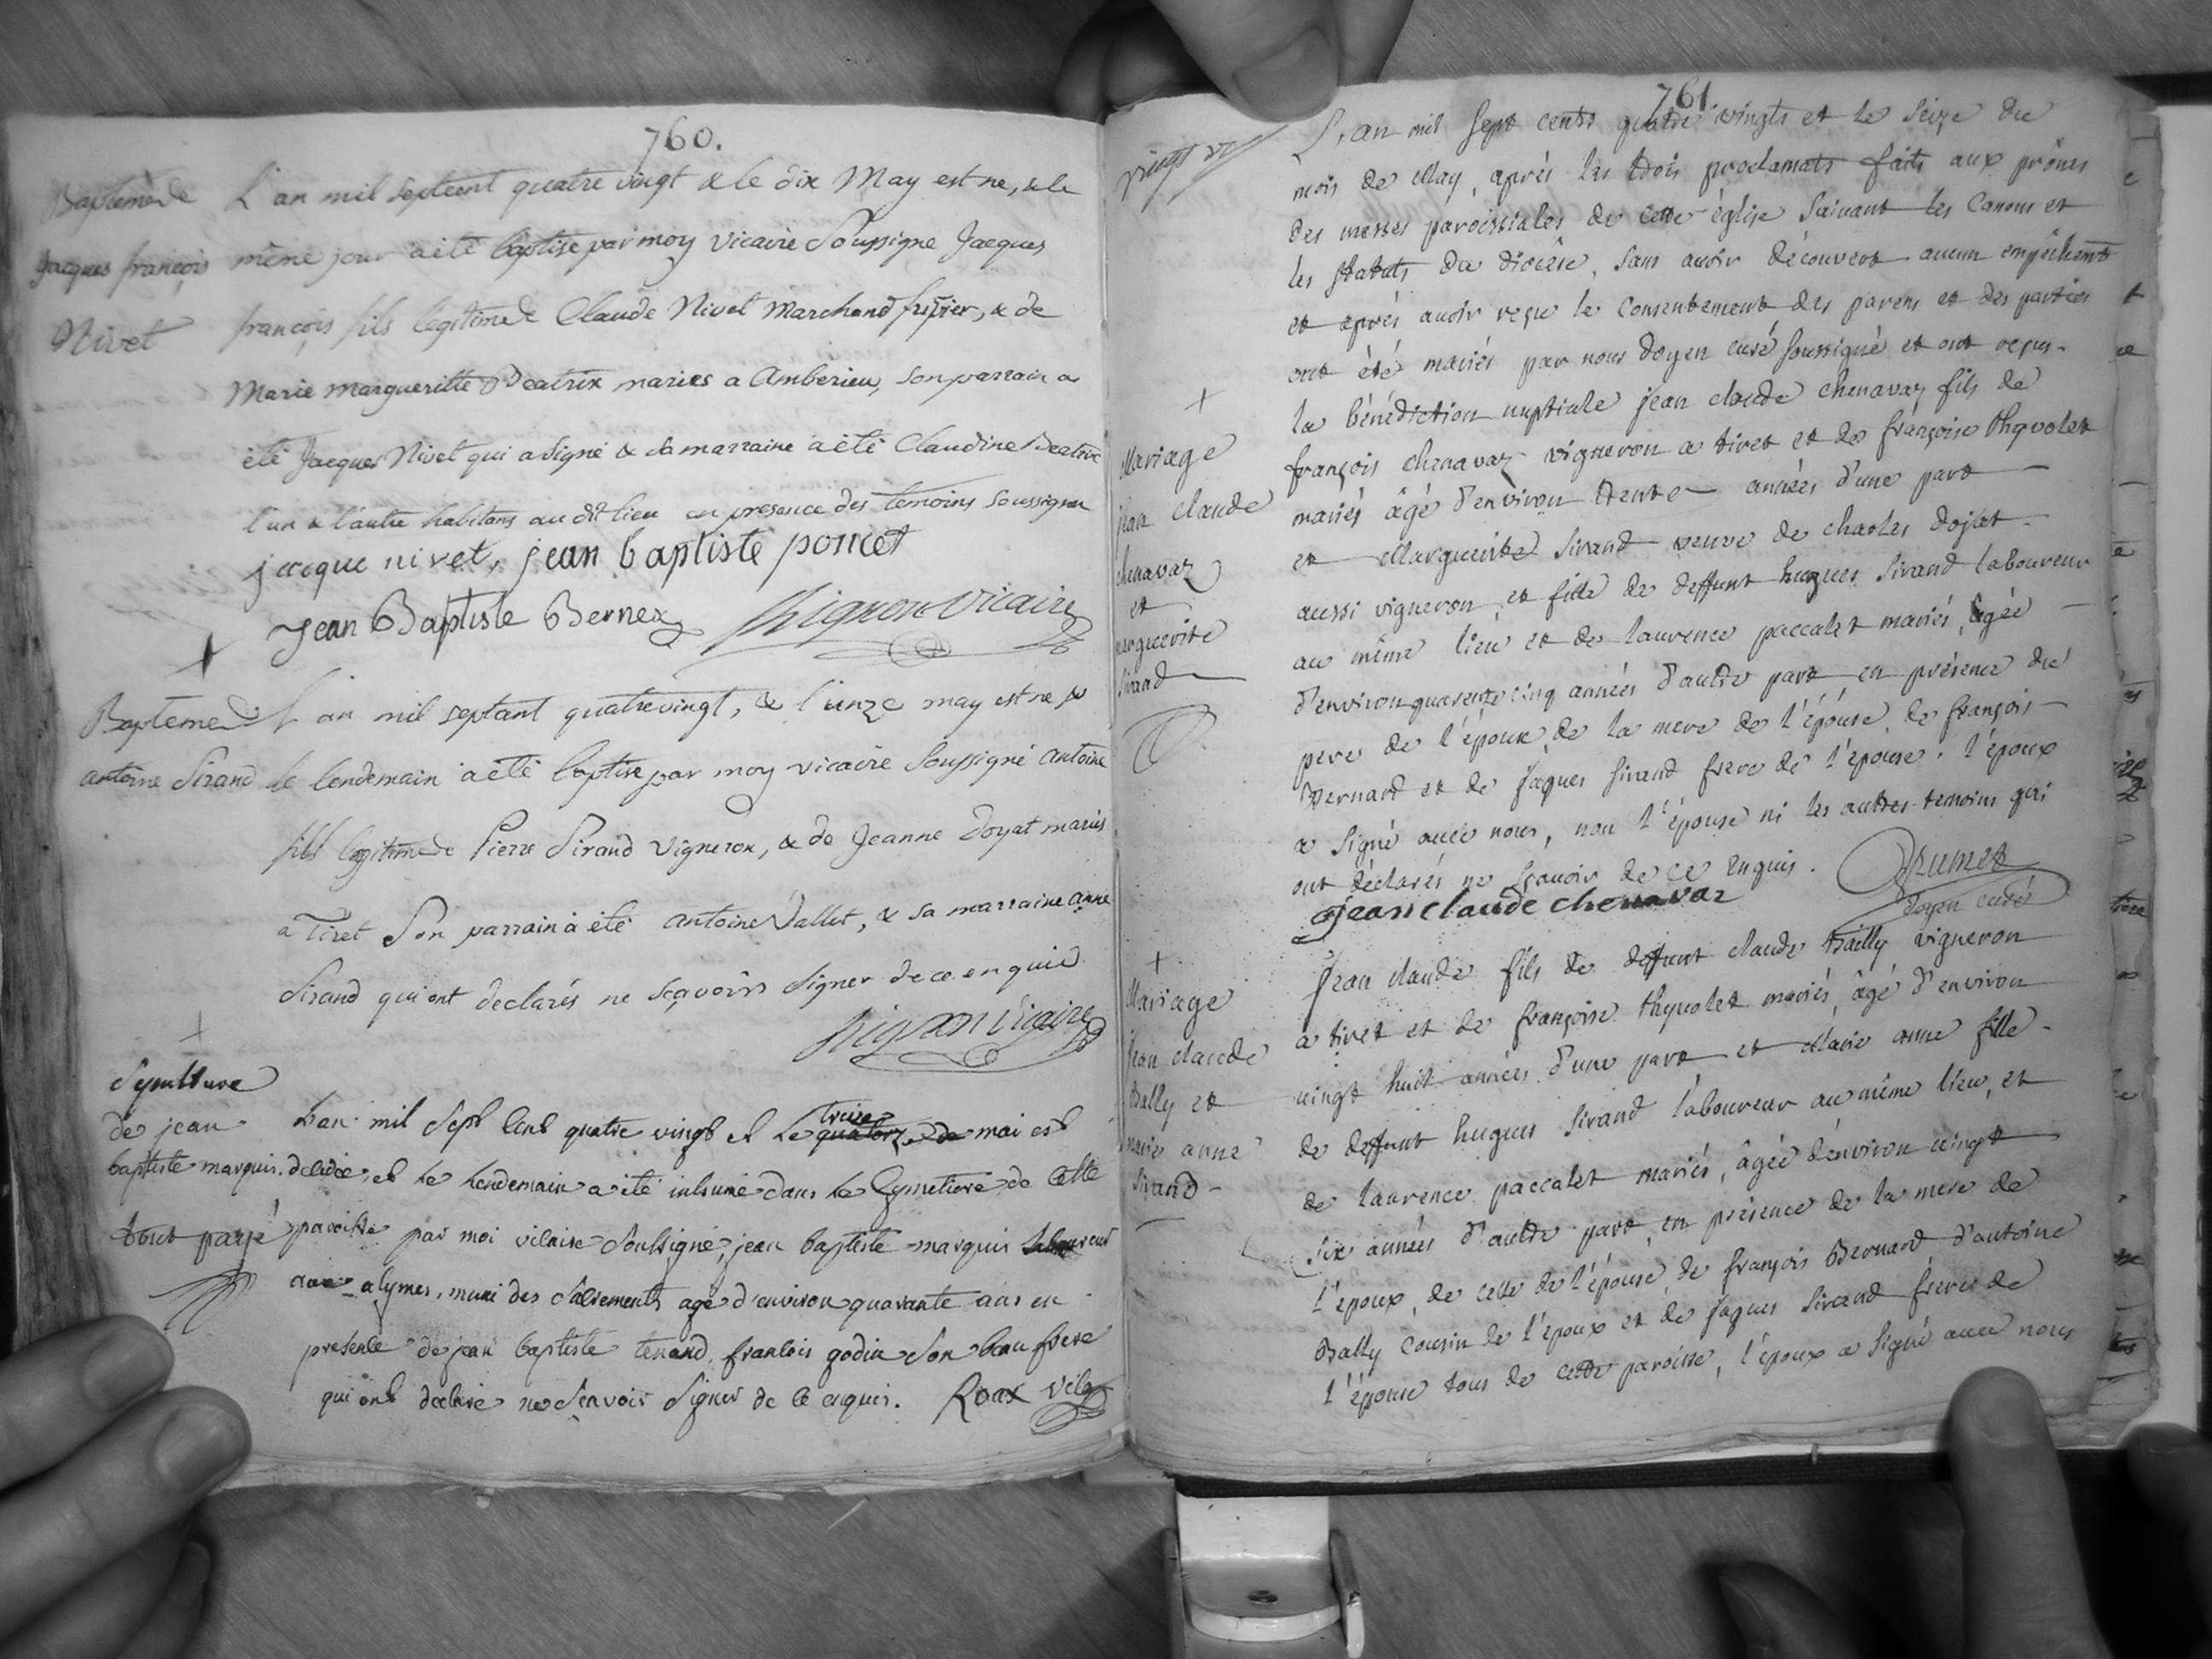 760.
Baptême de
Jacques françois
Nivet
L'an mil septcent quatre vingt & le dix May est ne, & le
même jour a été baptise par moy vicaire Soussigne Jacques
françois fils legitime de Claude Nivet Marchand fripier, & de
Marie margueritte Beatrix maries a Amberieu, son parrain a
été Jacques Nivet qui a signé & sa marraine a été Claudine Beatrix
l'un & l'autre habitans au dit lieu en presence des temoins soussignes
jacque nivet, jean baptiste poncet
Jean Baptiste Bernex vicaire
Bapteme de
antoine Sirand
L'an mil septant quatrevingt, & l'unze may est ne &
le lendemain a été baptise par moy vicaire soussigné antoine
fils legitime de Pierre Sirand vigneron, & de Jeanne Doyat mariés
a Tiret Son parrain à été antoine Vallet, & sa marraine anne
Sirand qui ont declarés ne sçavoir signer de ce enquis
vicaire
Sepulture
de jean
baptiste marquis.
tout payé
L'an mil sept cent quatre vingt et le quatorze de treize mai est
décédé et le lendemain a été inhumé dans le cymetiere de cette
paroisse par moi vicaire soussigné, jean baptiste marquis laboureur
aux alymes, muni des sacrements agé d'environ quarante ans en
presence de jean baptiste tenand, francois godin son beau frere
qui ont declaré ne sçavoir signer de ce enquis. Roux vic
761.
vingt
L'an mil sept cents quatre vingts et le seize du
mois de May, après les trois proclamats faits aux prônes
des messes paroissiales de cette église suivant les canons et
les statuts du diocèse, sans avoir découvert aucun empêchemt
et après avoir reçu le consentement des parens et des parties
ont été mariés par nous doyen curé soussigné et ont reçus
la bénédiction nuptiale jean claude chenavaz fils de
françois chenavaz vigneron a tiret et de françoise thevolet
mariés âgé d'environ trente années d'une part
et Marguerite Sirand veuve de charles dojat
aussi vigneron et fille de deffunt hugues Sirand laboureur
au même lieu et de laurence paccalet mariés, âgée
d'environ quarente cinq années d'autre part en présence du
pere de l'époux, de la mere de l'épouse, de françois
Bernard et de jaques Sirand frere de l'épouse. l'époux
a signé avec nous, non l'épouse ni les autres temoins qui
ont déclarés ne sçavoir de ce enquis. Brumet
doyen curé
jean claude chenavaz
+
Mariage
jean claude
chenavaz
et
marguerite
Sirand
+
Mariage
jean claude
Bally et
marie anne
Sirand
Jean claude fils de deffunt claude Bailly vigneron
a tiret et de françoise thevolet mariés, âgé d'environ
vingt huit années d'une part et Marie anne fille
de deffunt hugues Sirand laboureur au même lieu, et
de laurence paccalet mariés, âgée d'environ vingt
six années d'autre part, en présence de la mere de
l'époux, de celle de l'épouse, de françois Bernard, d'antoine
Bally cousin de l'époux et de jaques Sirand frere de
l'épouse tous de cette paroisse, l'époux a signé avec nous